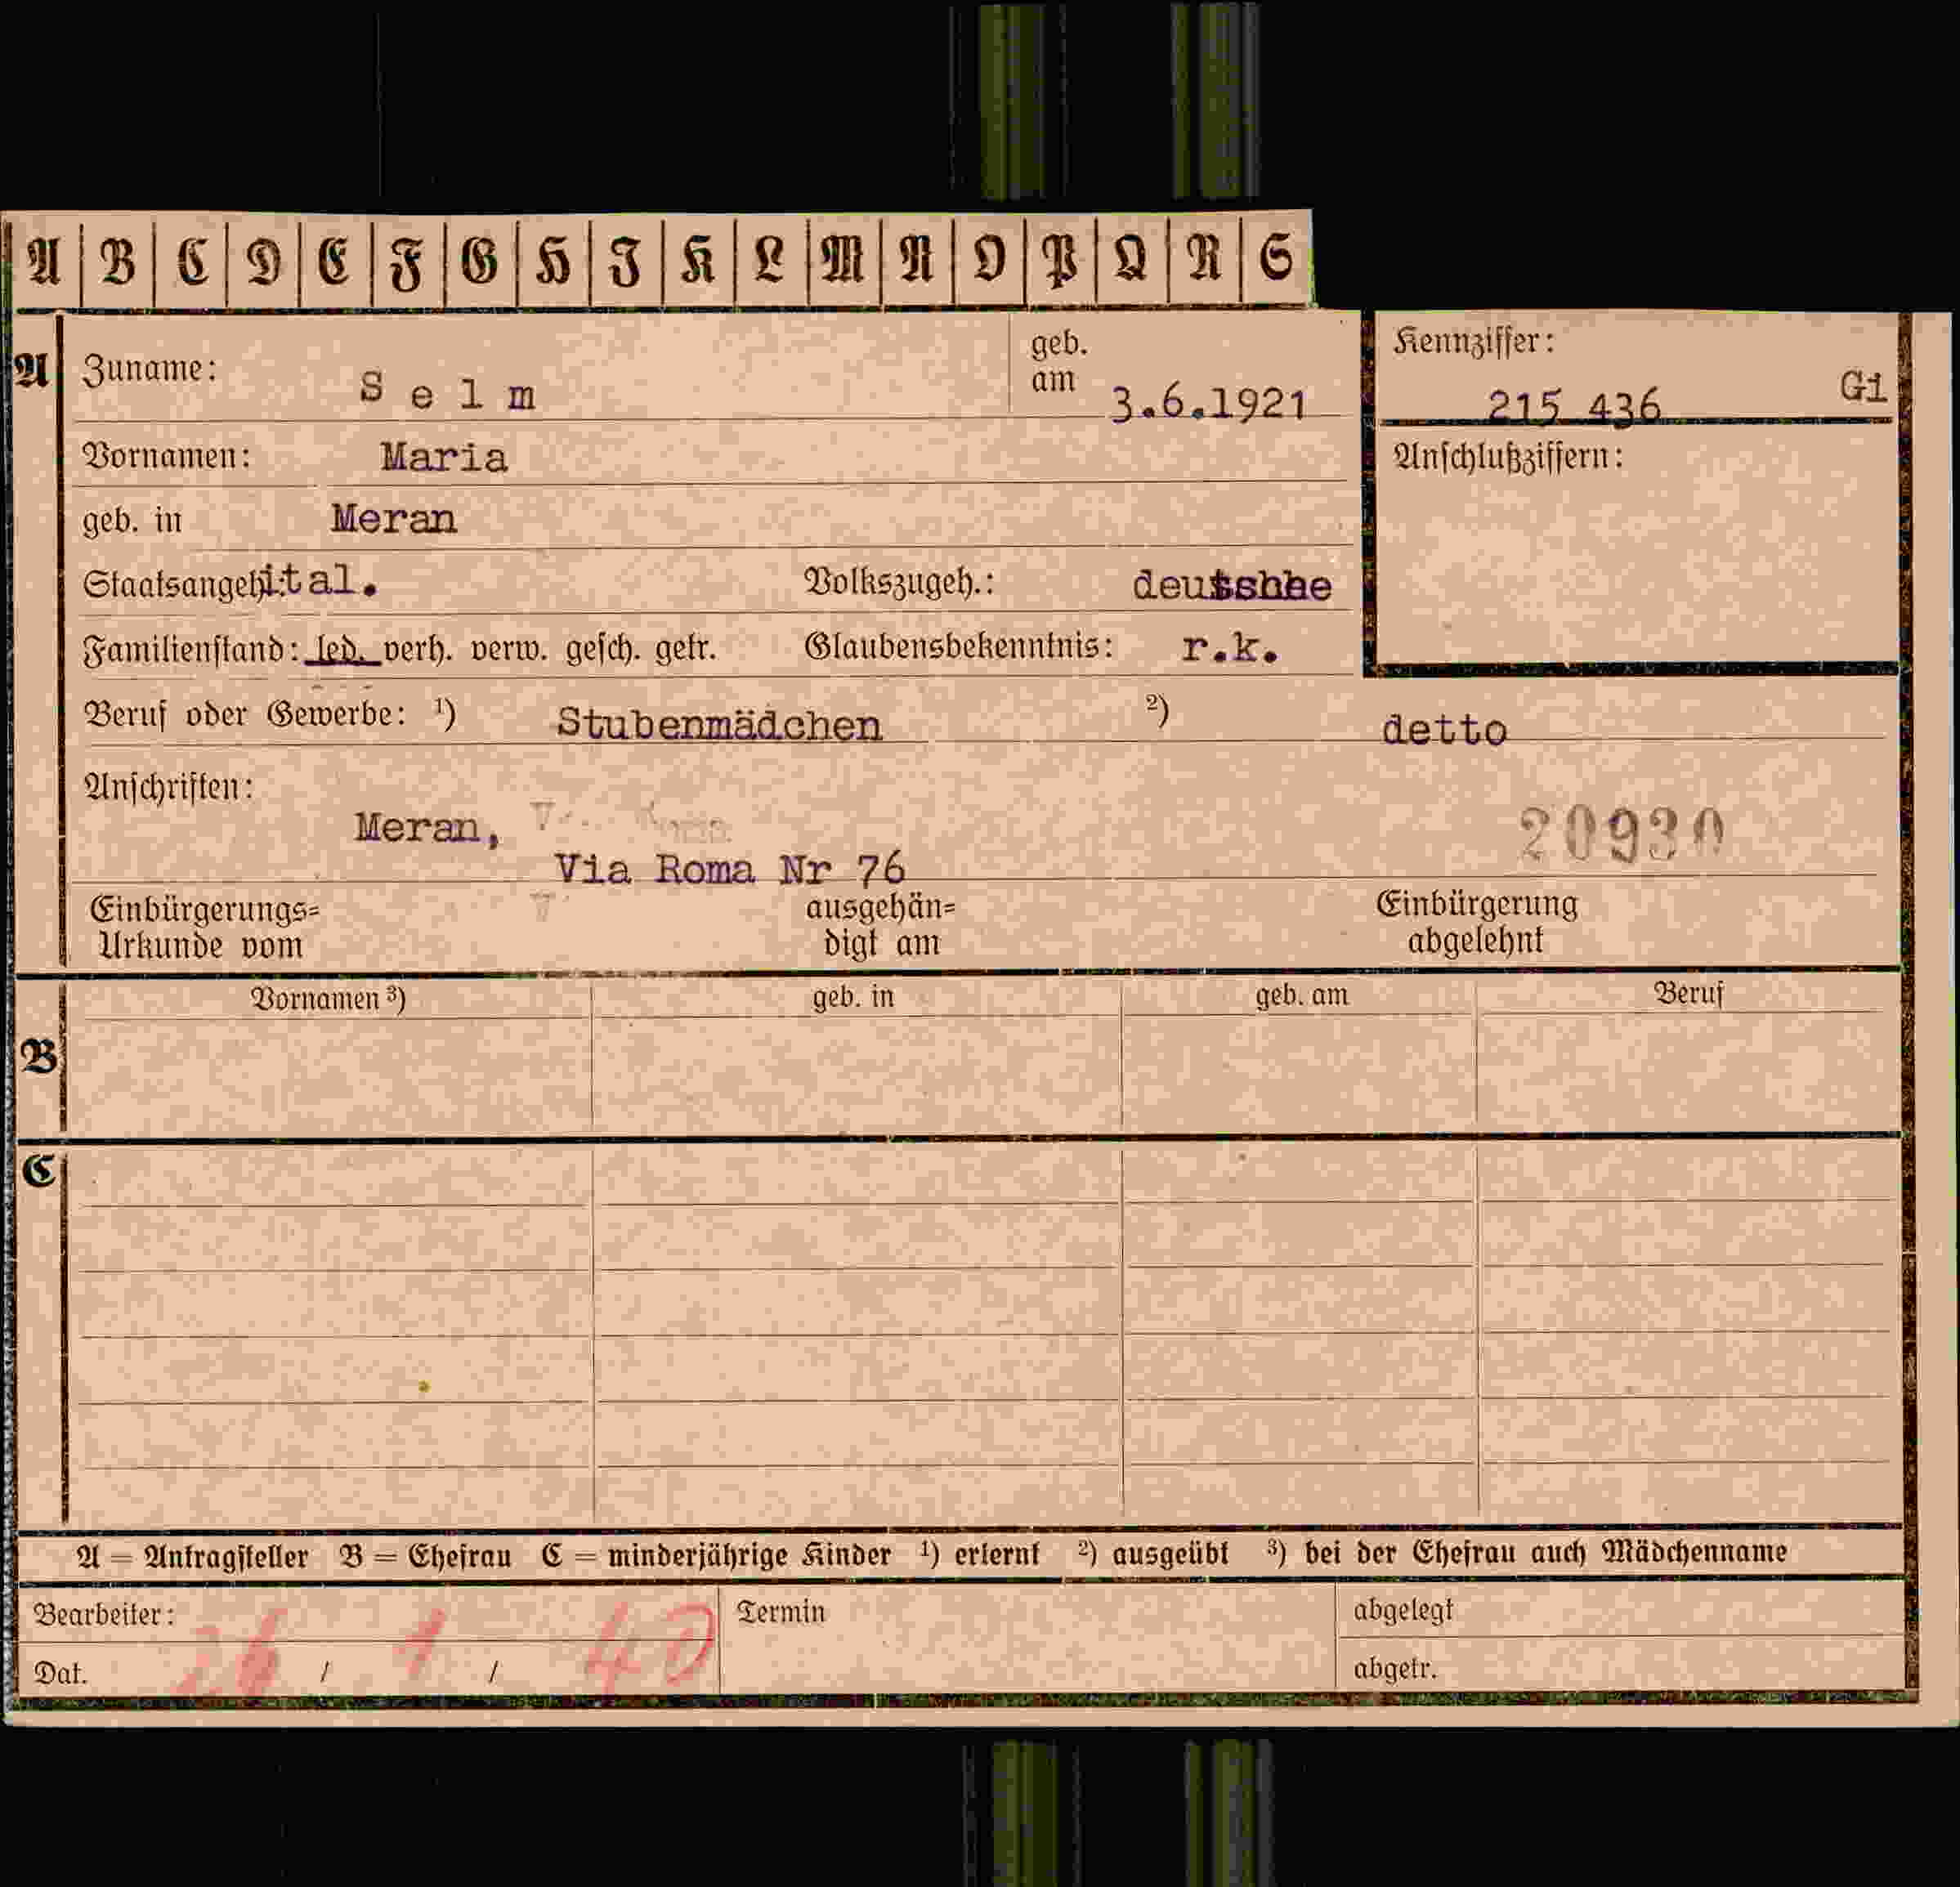 A B C D E F G H I K L M N O P Q R S
A Zuname: Selm geb. am 3.6.1921
Kennziffer: 215 436 Gi
Vornamen: Maria
Anschlußziffern:
geb. in Meran
Staatsangeh.: ital. Volkszugeh.: deutsche
Familienstand: led. verh. verw. gesch. getr. Glaubensbekenntnis: r.k.
Beruf oder Gewerbe: 1) Stubenmädchen 2) detto
Anschriften:
Meran,
20930
Via Roma Nr 76
Einbürgerungs= Urkunde vom ausgehän= digt am Einbürgerung abgelehnt
Vornamen 3) geb. in geb. am Beruf
B
C
A = Antragsteller B = Ehefrau C = minderjährige Kinder 1) erlernt 2) ausgeübt 3) bei der Ehefrau auch Mädchenname
Bearbeiter: Termin abgelegt
Dat. 26 / 1 / 40 abgetr.